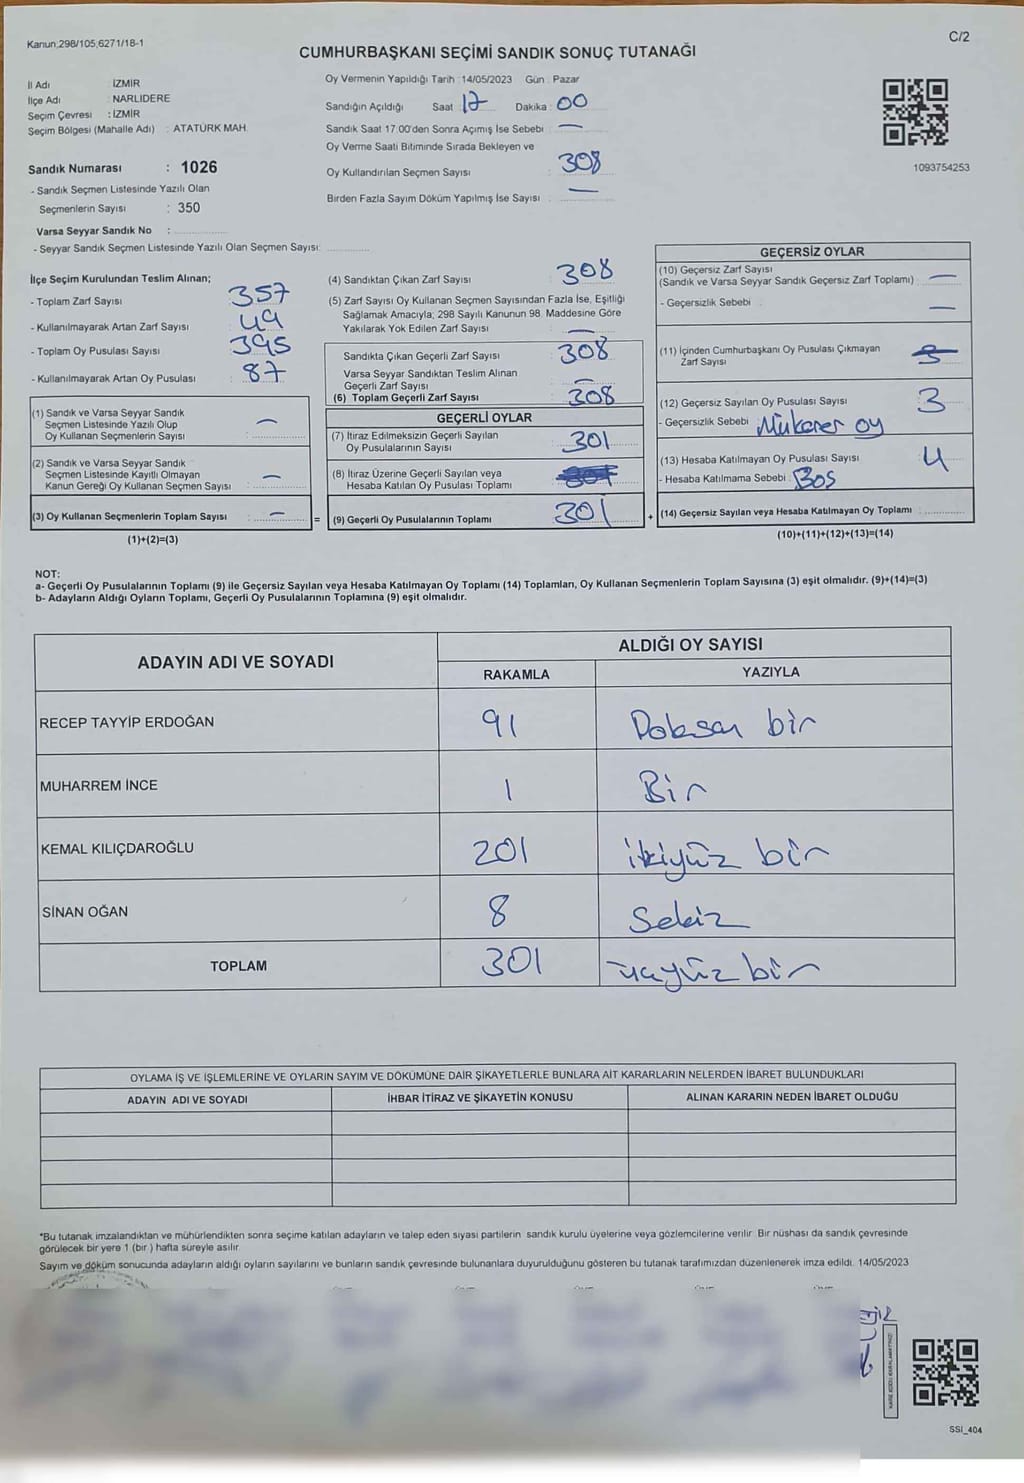 Kanun;298/105,6271/18-1
C/2
CUMHURBAŞKANI SEÇİMİ SANDIK SONUÇ TUTANAĞI
İl Adı : İZMİR
İlçe Adı : NARLIDERE
Seçim Çevresi : İZMİR
Seçim Bölgesi (Mahalle Adı) : ATATÜRK MAH.
Sandık Numarası : 1026
- Sandık Seçmen Listesinde Yazılı Olan
Seçmenlerin Sayısı : 350
Varsa Seyyar Sandık No :
- Seyyar Sandık Seçmen Listesinde Yazılı Olan Seçmen Sayısı:
Oy Vermenin Yapıldığı Tarih : 14/05/2023 Gün : Pazar
Sandığın Açıldığı Saat : 17 Dakika : 00
Sandık Saat 17:00'den Sonra Açımış İse Sebebi : —
Oy Verme Saati Bitiminde Sırada Bekleyen ve
Oy Kullandırılan Seçmen Sayısı : 308
Birden Fazla Sayım Döküm Yapılmış İse Sayısı : —
1093754253
İlçe Seçim Kurulundan Teslim Alınan;
- Toplam Zarf Sayısı : 357
- Kullanılmayarak Artan Zarf Sayısı : 49
- Toplam Oy Pusulası Sayısı : 395
- Kullanılmayarak Artan Oy Pusulası : 87
(1) Sandık ve Varsa Seyyar Sandık
Seçmen Listesinde Yazılı Olup
Oy Kullanan Seçmenlerin Sayısı : —
(2) Sandık ve Varsa Seyyar Sandık
Seçmen Listesinde Kayıtlı Olmayan
Kanun Gereği Oy Kullanan Seçmen Sayısı : —
(3) Oy Kullanan Seçmenlerin Toplam Sayısı : —
(1)+(2)=(3)
=
(4) Sandıktan Çıkan Zarf Sayısı : 308
(5) Zarf Sayısı Oy Kullanan Seçmen Sayısından Fazla İse, Eşitliği
Sağlamak Amacıyla; 298 Sayılı Kanunun 98. Maddesine Göre
Yakılarak Yok Edilen Zarf Sayısı : —
Sandıkta Çıkan Geçerli Zarf Sayısı : 308
Varsa Seyyar Sandıktan Teslim Alınan
Geçerli Zarf Sayısı : —
(6) Toplam Geçerli Zarf Sayısı : 308
GEÇERLİ OYLAR
(7) İtiraz Edilmeksizin Geçerli Sayılan
Oy Pusulalarının Sayısı : 301
(8) İtiraz Üzerine Geçerli Sayılan veya
Hesaba Katılan Oy Pusulası Toplamı :
(9) Geçerli Oy Pusulalarının Toplamı : 301
+
GEÇERSİZ OYLAR
(10) Geçersiz Zarf Sayısı
(Sandık ve Varsa Seyyar Sandık Geçersiz Zarf Toplamı) : —
- Geçersizlik Sebebi : —
(11) İçinden Cumhurbaşkanı Oy Pusulası Çıkmayan
Zarf Sayısı :
(12) Geçersiz Sayılan Oy Pusulası Sayısı : 3
- Geçersizlik Sebebi : Mükerer oy
(13) Hesaba Katılmayan Oy Pusulası Sayısı : 4
- Hesaba Katılmama Sebebi : Boş
(14) Geçersiz Sayılan veya Hesaba Katılmayan Oy Toplamı :
(10)+(11)+(12)+(13)=(14)
NOT:
a- Geçerli Oy Pusulalarının Toplamı (9) ile Geçersiz Sayılan veya Hesaba Katılmayan Oy Toplamı (14) Toplamları, Oy Kullanan Seçmenlerin Toplam Sayısına (3) eşit olmalıdır. (9)+(14)=(3)
b- Adayların Aldığı Oyların Toplamı, Geçerli Oy Pusulalarının Toplamına (9) eşit olmalıdır.
ADAYIN ADI VE SOYADI
ALDIĞI OY SAYISI
RAKAMLA YAZIYLA
RECEP TAYYİP ERDOĞAN 91 Doksan bir
MUHARREM İNCE 1 Bir
KEMAL KILIÇDAROĞLU 201 ikiyüz bir
SİNAN OĞAN 8 Sekiz
TOPLAM 301 üçyüz bir
OYLAMA İŞ VE İŞLEMLERİNE VE OYLARIN SAYIM VE DÖKÜMÜNE DAİR ŞİKAYETLERLE BUNLARA AİT KARARLARIN NELERDEN İBARET BULUNDUKLARI
ADAYIN ADI VE SOYADI İHBAR İTİRAZ VE ŞİKAYETİN KONUSU ALINAN KARARIN NEDEN İBARET OLDUĞU
*Bu tutanak imzalandıktan ve mühürlendikten sonra seçime katılan adayların ve talep eden siyasi partilerin sandık kurulu üyelerine veya gözlemcilerine verilir. Bir nüshası da sandık çevresinde
görülecek bir yere 1 (bir ) hafta süreyle asılır.
Sayım ve döküm sonucunda adayların aldığı oyların sayılarını ve bunların sandık çevresinde bulunanlara duyurulduğunu gösteren bu tutanak tarafımızdan düzenlenerek imza edildi. 14/05/2023
SSI_404